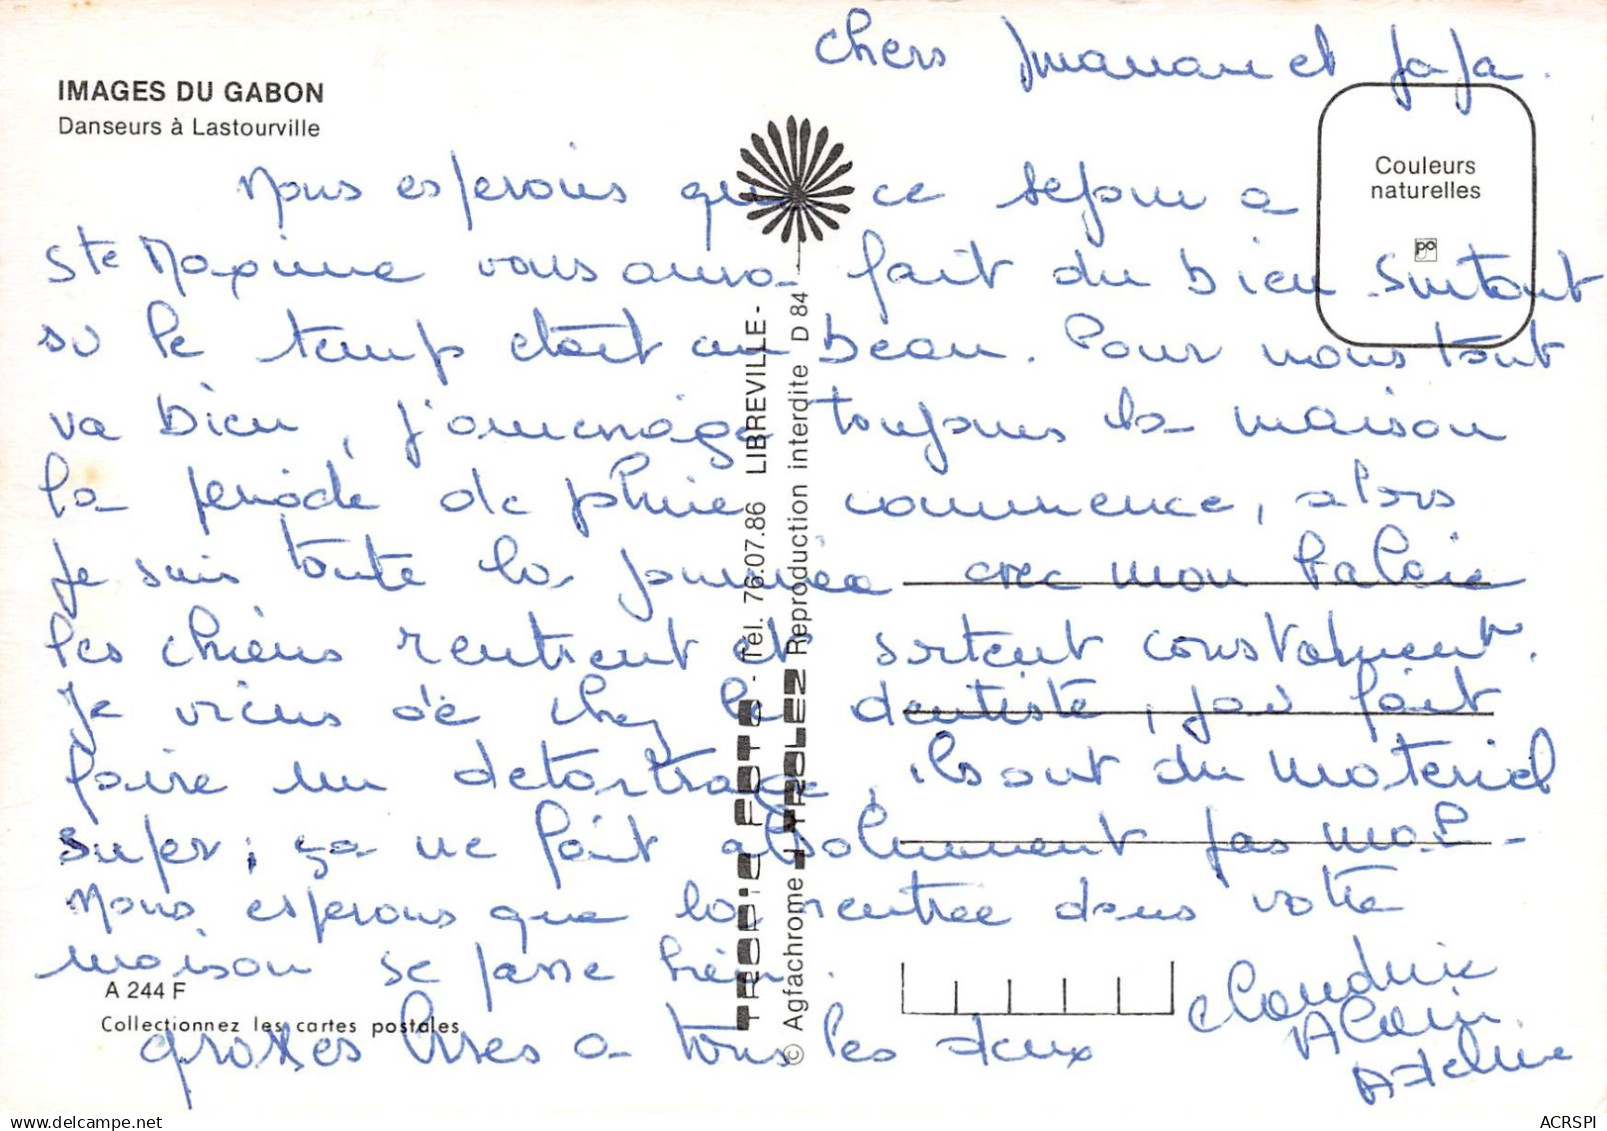 chers maman et papa.
IMAGES DU GABON
Danseurs à Lastourville
Couleurs
naturelles
Nous esperons que ce sejour a
Ste Maxime vous aura fait du bien surtout
si le temps etait au beau. Pour nous tout
va bien, j'amenage toujours la maison
la periode de pluie commence, alors
je suis toute la journée avec mon balais
les chiens rentrent et sortent constament.
Je viens de chez le dentiste, j'ai fait
faire un detartrage, ils ont du materiel
super; ça ne fait absolument pas mal-
Nous esperons que la rentree dans votre
maison se passe bien.
grosses bises a tous les deux
Claudine
Alain
A 244 F
Collectionnez les cartes postales
TROPIC FOTO - Tél. 76.07.86 LIBREVILLE -
© Agfachrome J. TROLEZ Reproduction interdite D 84
ACRSPI